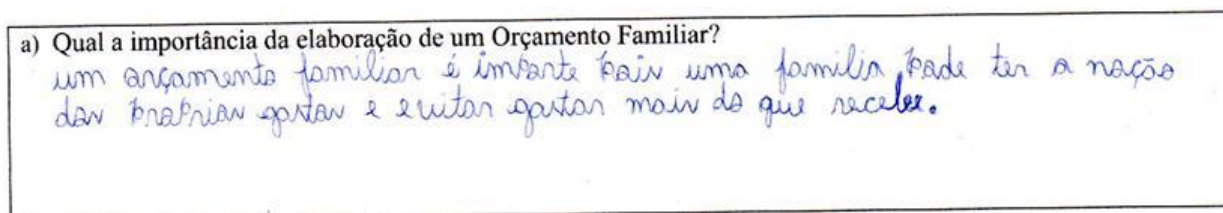 a) Qual a importância da elaboração de um Orçamento Familiar?
um orçamento familiar é imparte pois uma familia pode ter a noção
das proprias gastos e evitar gastar mais do que recebe.